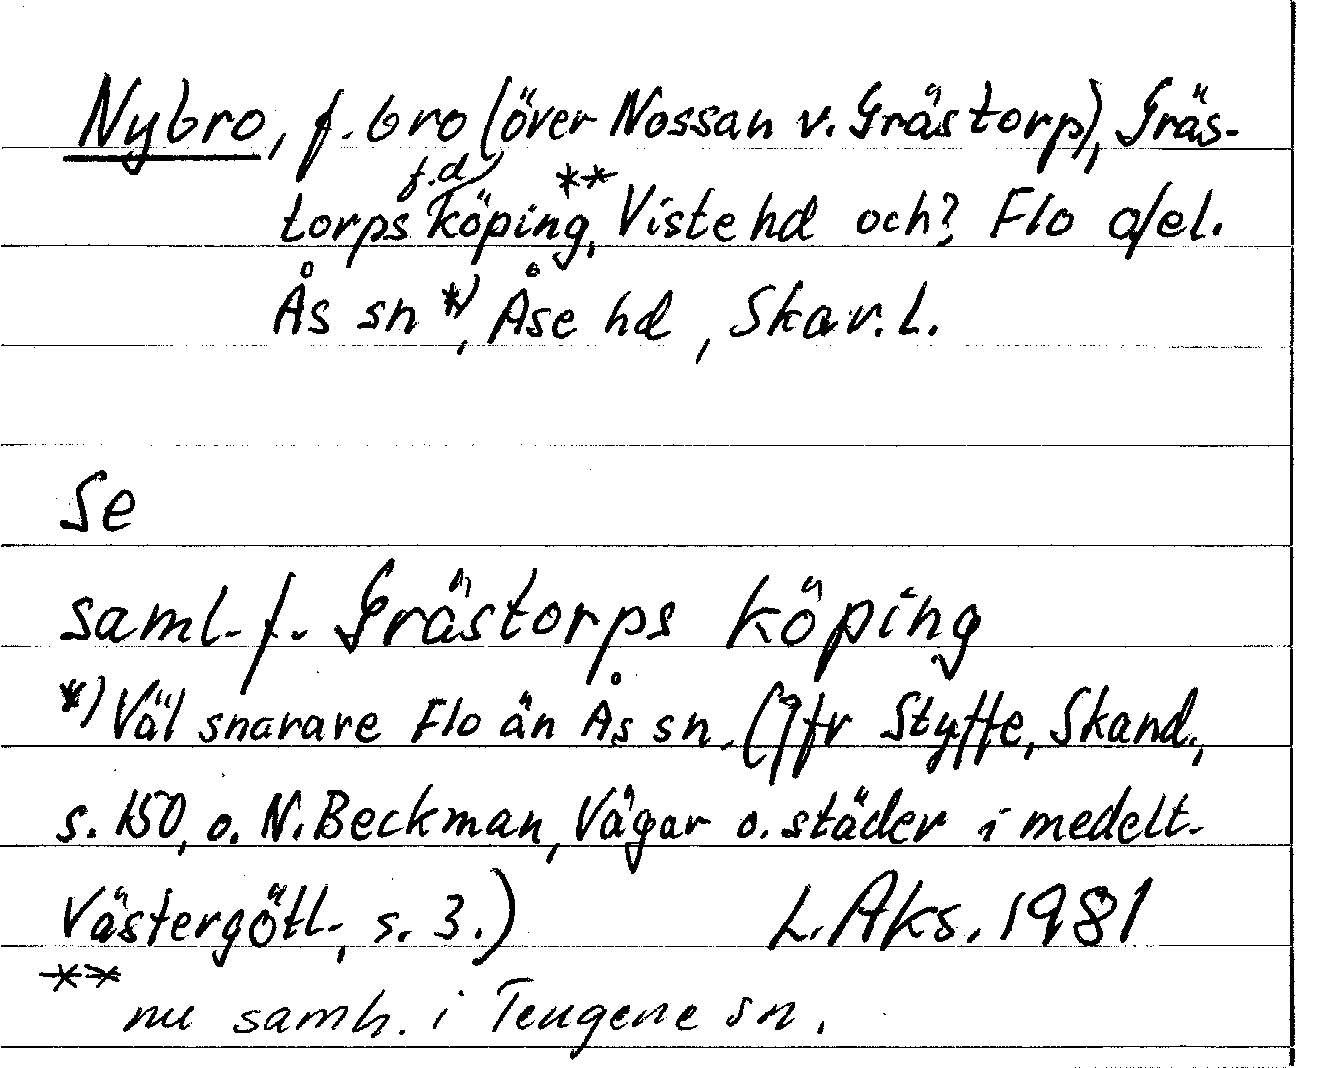 Nybro, f. bro (över Nossan v. Grästorp), Gräs-
torps f.d. köping,** Viste hd och? Flo o/el.
Ås sn *), Åse hd, Skar. L.
Se
saml. f. Grästorps köping
*) Väl snarare Flo än Ås sn. (Jfr Styffe, Skand.,
s. 150, o. N. Beckman, Vägar o. städer i medelt.
Västergötl., s. 3.) L. Aks. 1981
**
nu samh. i Tengene sn.